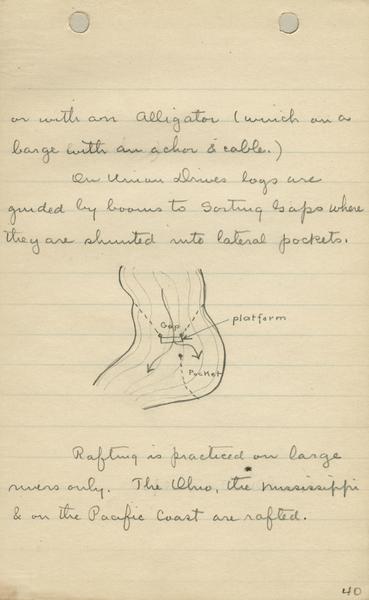 or with an Alligator (winch on a
barge with an achor & cable.)
On Union Drives logs are
guided by booms to Sorting Gaps where
they are shunted into lateral pockets.
Gap
platform
Pocket
Rafting is practiced on large
rivers only. The Ohio, the Mississippi
& on the Pacific Coast are rafted.
40